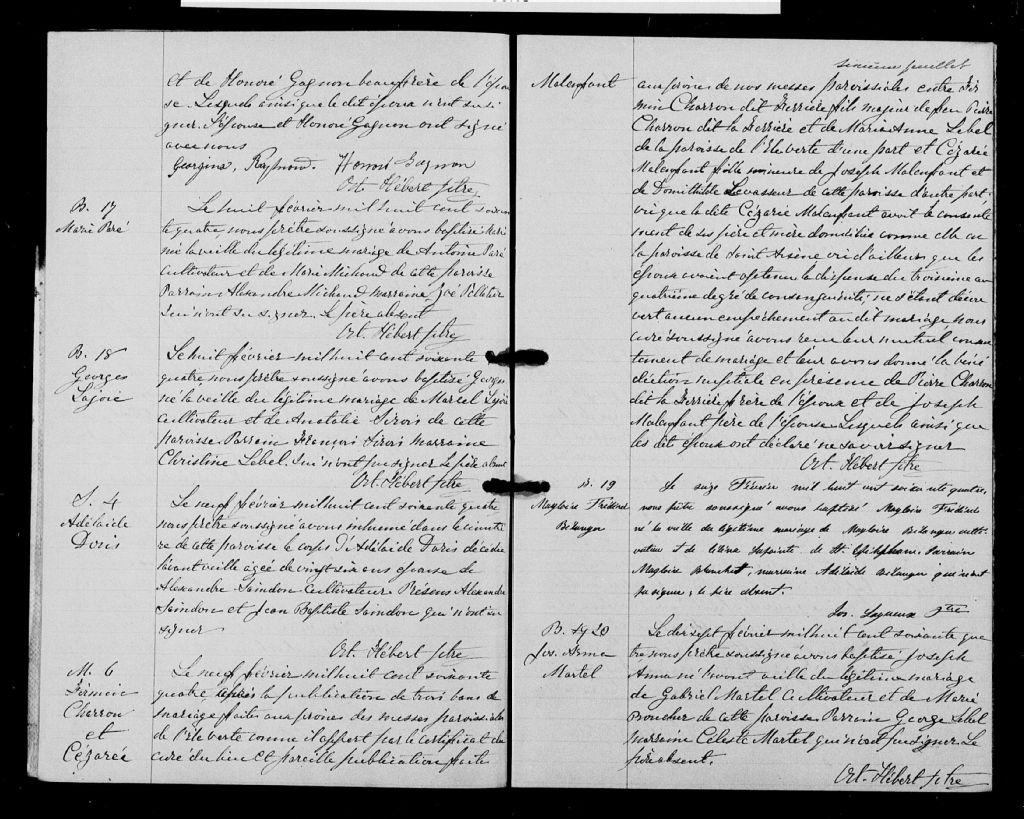 et de Honoré Gagnon beau frère de l'épou
se. Lesquels ainsi que le dit époux n'ont su si
gner. L'épouse et Honoré Gagnon ont signé
avec nous
Georgina Raymond. Honoré Gagnon
Oct. Hébert ptre
B. 17
Marie Paré
Le huit février mil huit cent soixan
te quatre nous prêtre soussigné avons baptisé Marie
née la veille du légitime mariage de Antoine Paré
cultivateur et de Marie Michaud de cette paroisse
Parrain Alexandre Michaud marraine Zoé Pelletier
qui n'ont su signer. Le père absent
Oct. Hébert ptre
B. 18
Georges
Lajoie
Le huit février mil huit cent soixante
quatre nous prêtre soussigné avons baptisé Georges
né la veille du légitime mariage de Marcel Lajoie
cultivateur et de Anatalie Sirois de cette
paroisse. Parrain François Sirois marraine
Christine Lebel. Qui n'ont pu signer le père absent
Oct. Hébert ptre
S. 4
Adélaïde
Doris
Le neuf février mil huit cent soixante quatre
nous prêtre soussigné avons inhumé dans le cimetiè
re de cette paroisse le corps d'Adélaïde Doris décédée
l'avant veille agée de vingt six ans épouse de
Alexandre Saindon cultivateur. Présens Alexandre
Saindon et Jean Baptiste Saindon qui n'ont su
signer
Oct. Hébert ptre
M. 6
Firmin
Charron
et
Cézarée
Le neuf février mil huit cent soixante
quatre après la publication de trois bans de
mariage faite aux prônes des messes paroissiales
de l'Ile verte comme il appert par le certificat du
curé du lieu et pareille publication faite
sixième feuillet
Malenfant
aux prônes de nos messes paroissiales entre Fir
min Charron dit Ferrière fils majeur de feu Pierre
Charron dit la Ferrière et de Marie Anne Lebel
de la paroisse de l'Ile verte d'une part et Cézarie
Malenfant fille mineure de Joseph Malenfant et
de Domithilde Levasseur de cette paroisse d'autre part,
vu que la dite Cézarie Malenfant avoit le consente
ment de ses père et mère domiciliés comme elle en
la paroisse de Saint Arsène vu d'ailleurs que les
époux avoient obtenu la dispense du troisième au
quatrième degré de consanguinité, ne s'étant décou
vert aucun empêchement au dit mariage nous
curé soussigné avons reçu leur mutuel consen
tement de mariage et leur avons donné la béné
diction nuptiale en présence de Pierre Charron
dit la Ferrière frère de l'époux et de Joseph
Malenfant père de l'épouse Lesquels ainsi que
les dit époux ont déclaré ne savoir signer
Oct. Hébert ptre
B. 19
Magloire Frédéric
Belanger
Le Février mil huit cent soixante quatre,
nous prêtre soussigné avons baptisé Magloire Frédéric
né la veille du légitime mariage de Magloire Bélanger culti-
vateur et de Lapointe de St Epiphane. Parrain
Magloire Blanchet, marraine Adélaïde Bélanger qui n'ont
pu signer, le père absent.
Jos. Lagueux Ptre
B. 20
Jos. Arma
Martel
Le dix sept février mil huit cent soixante qua
tre nous prêtre soussigné avons baptisé Joseph
Arma né l'avant veille du légitime mariage
de Gabriel Martel cultivateur et de Marie
Boucher de cette paroisse Parrain George Lebel
marraine Céleste Martel qui n'ont pu signer. Le
père absent.
Oct. Hébert ptre